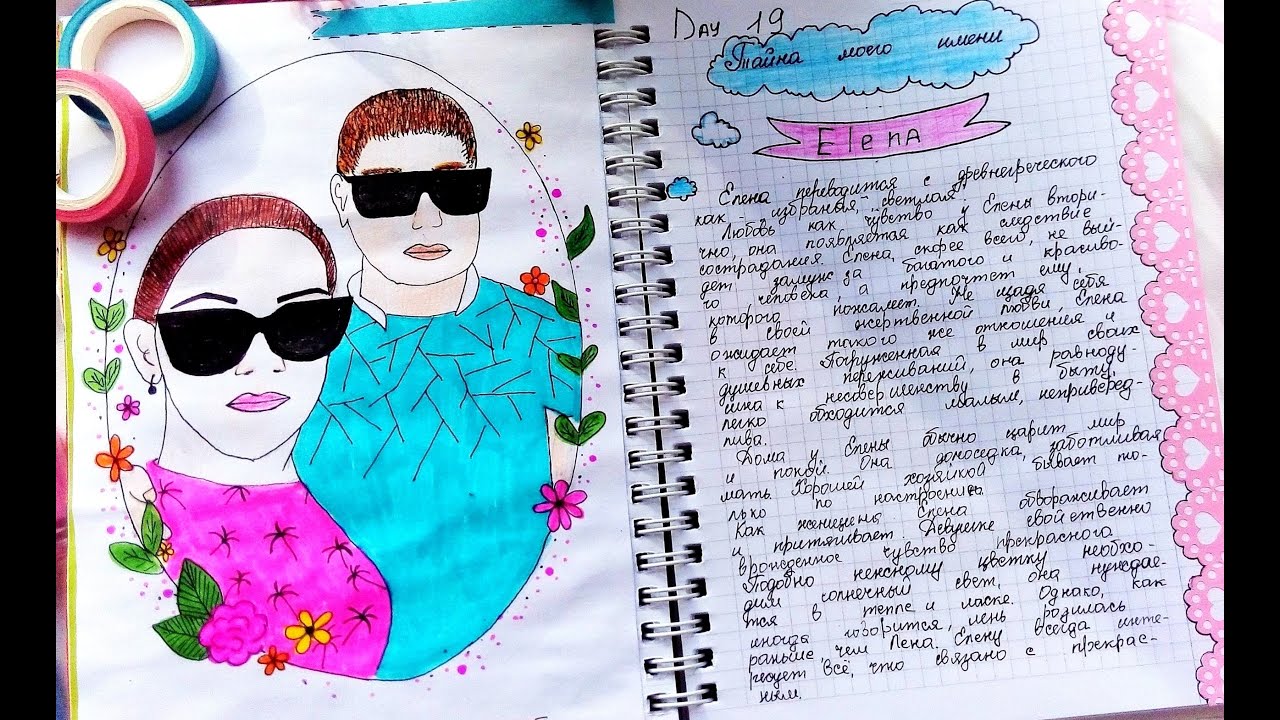 Day 19
Тайна моего имени
Elena
Елена переводится с древнегреческого
как - избраная, светлая.
Любовь как чувство у Елены втори-
чно, она появляется как следствие
сострадания. Елена, скорее всего, не вый-
дет замуж за богатого и красиво-
го человека, а предпочтет ему,
которого пожалет. Не щадя себя
в своей жертвенной любви Елена
ожидает такого же отношения и
к себе. Погруженная в мир своих
душевных переживаний, она равноду-
шна к несовершенству в быту,
легко обходится малым, неприверед-
лива.
Дома у Елены обычно царит мир
и покой. Она домоседка, заботливая
мать. Хорошей хозяйкой бывает то-
лько по настроению.
Как женщина Елена завораживает
и притягивает. Девушке свойственно
врожденное чувство прекрасного.
Подобно нежному цветку необхо-
дим солнечный свет, она нуждае-
тся в тепле и ласке. Однако, как
иногда говорится, лень родилась
раньше чем Лена. Елену всегда инте-
ресует всё, что связано с прекрас-
ным.